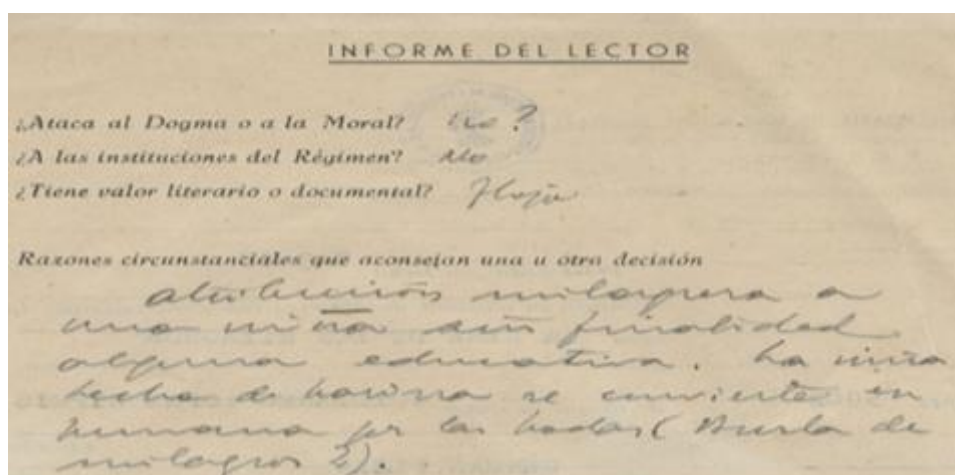 INFORME DEL LECTOR
¿Ataca al Dogma o a la Moral? no?
¿A las instituciones del Régimen? No
¿Tiene valor literario o documental? Floja
Razones circunstanciales que aconsejan una u otra decisión
atribución milagrera a
una niña sin finalidad
alguna educativa. La niña
hecha de harina se convierte en
humana por las hadas (Burla de
milagros?).